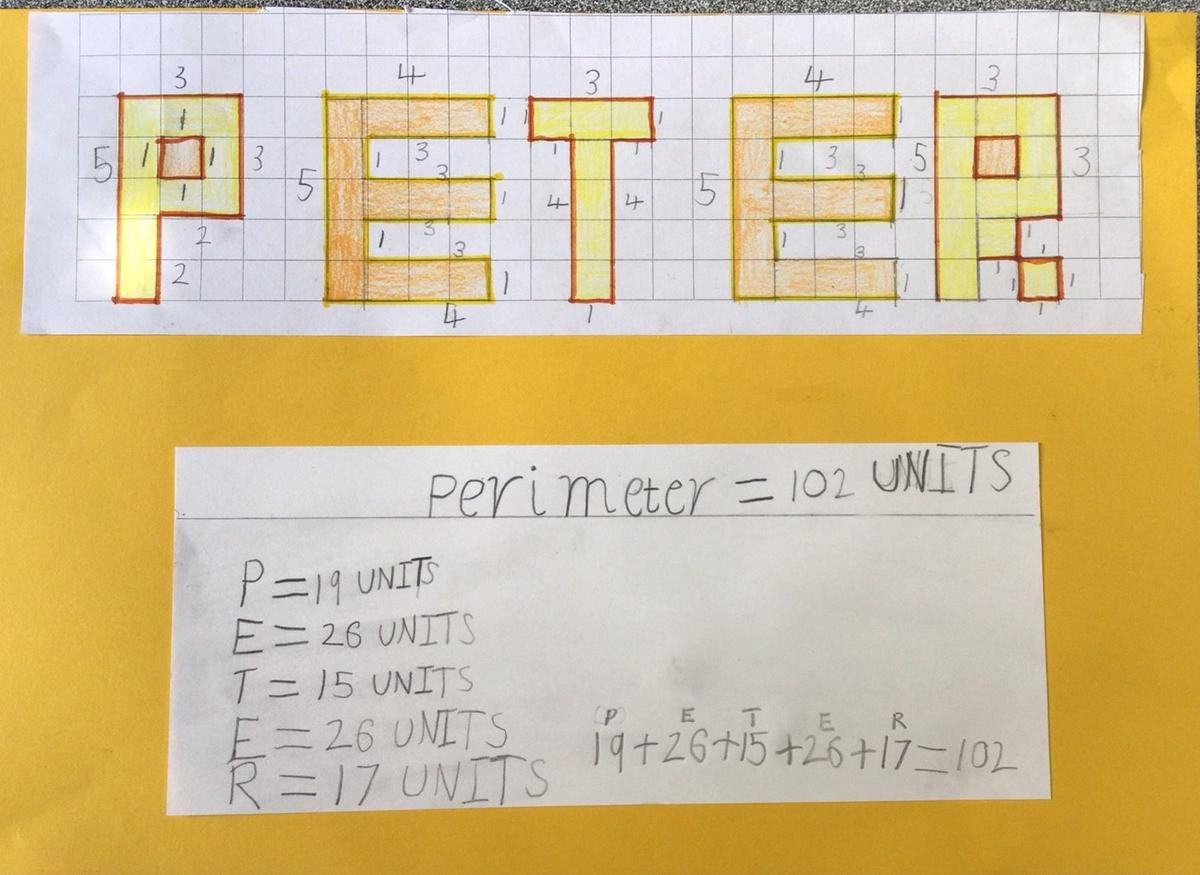 3 4 3 4 3
1 1 1 1 1
5 1 1 3 5 1 3 3 1 1 1 5 1 3 3 1 5 3
1 4 4
2 1 3 3 1 3 3 1 1
2 1 1 1 1 1 1
4 1 4 1
Perimeter = 102 UNITS
P = 19 UNITS
E = 26 UNITS
T = 15 UNITS
E = 26 UNITS
R = 17 UNITS
(P) E T E R
19+26+15+26+17=102